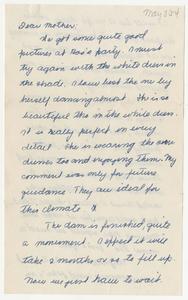 May 3 54
Dear Mother.
We got some quite good
pictures at Rosa's party. I must
try again with the white dress in
the shade. I love best the one by
herself dancing almost. She is so
beautiful like in the white dress.
It is really perfect in every
detail. She is wearing the some
dresses too and enjoying them. My
comment was only for future
guidance. They are ideal for
this climate.
The dam is finished, quite
a monument. I expect it will
take 2 months or so to fill up.
Now we just have to wait.